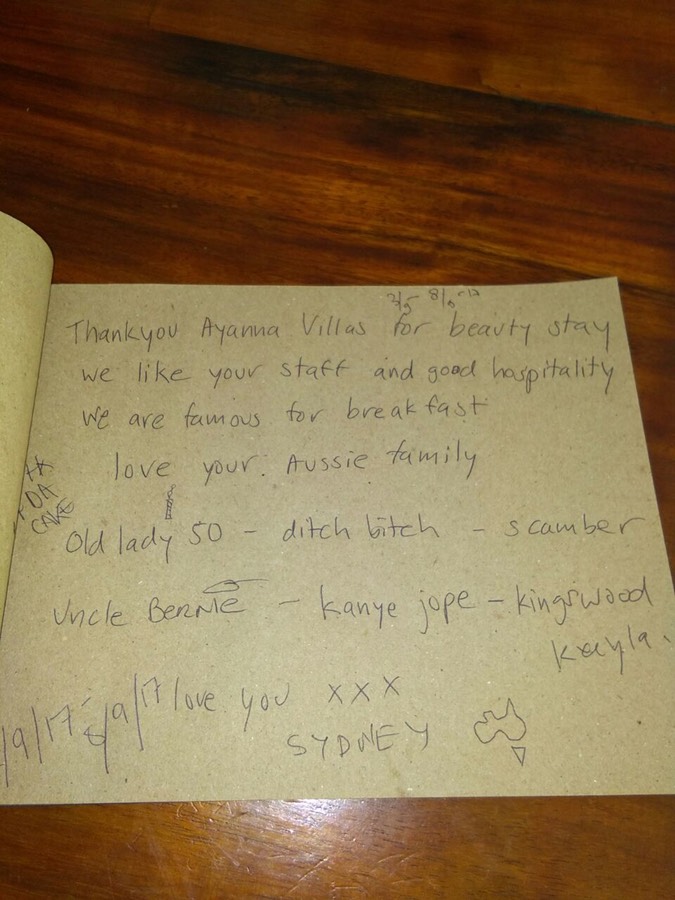 Thankyou Ayanna Villas for beauty stay
we like your staff and good hospitality
we are famous for breakfast
love your. Aussie family
CAKE
Old lady 50 - ditch bitch - scamber
Uncle BERNIE - kanye jope - kingswood
kayla.
/9/17 - 8/9/17 love you xxx
SYDNEY